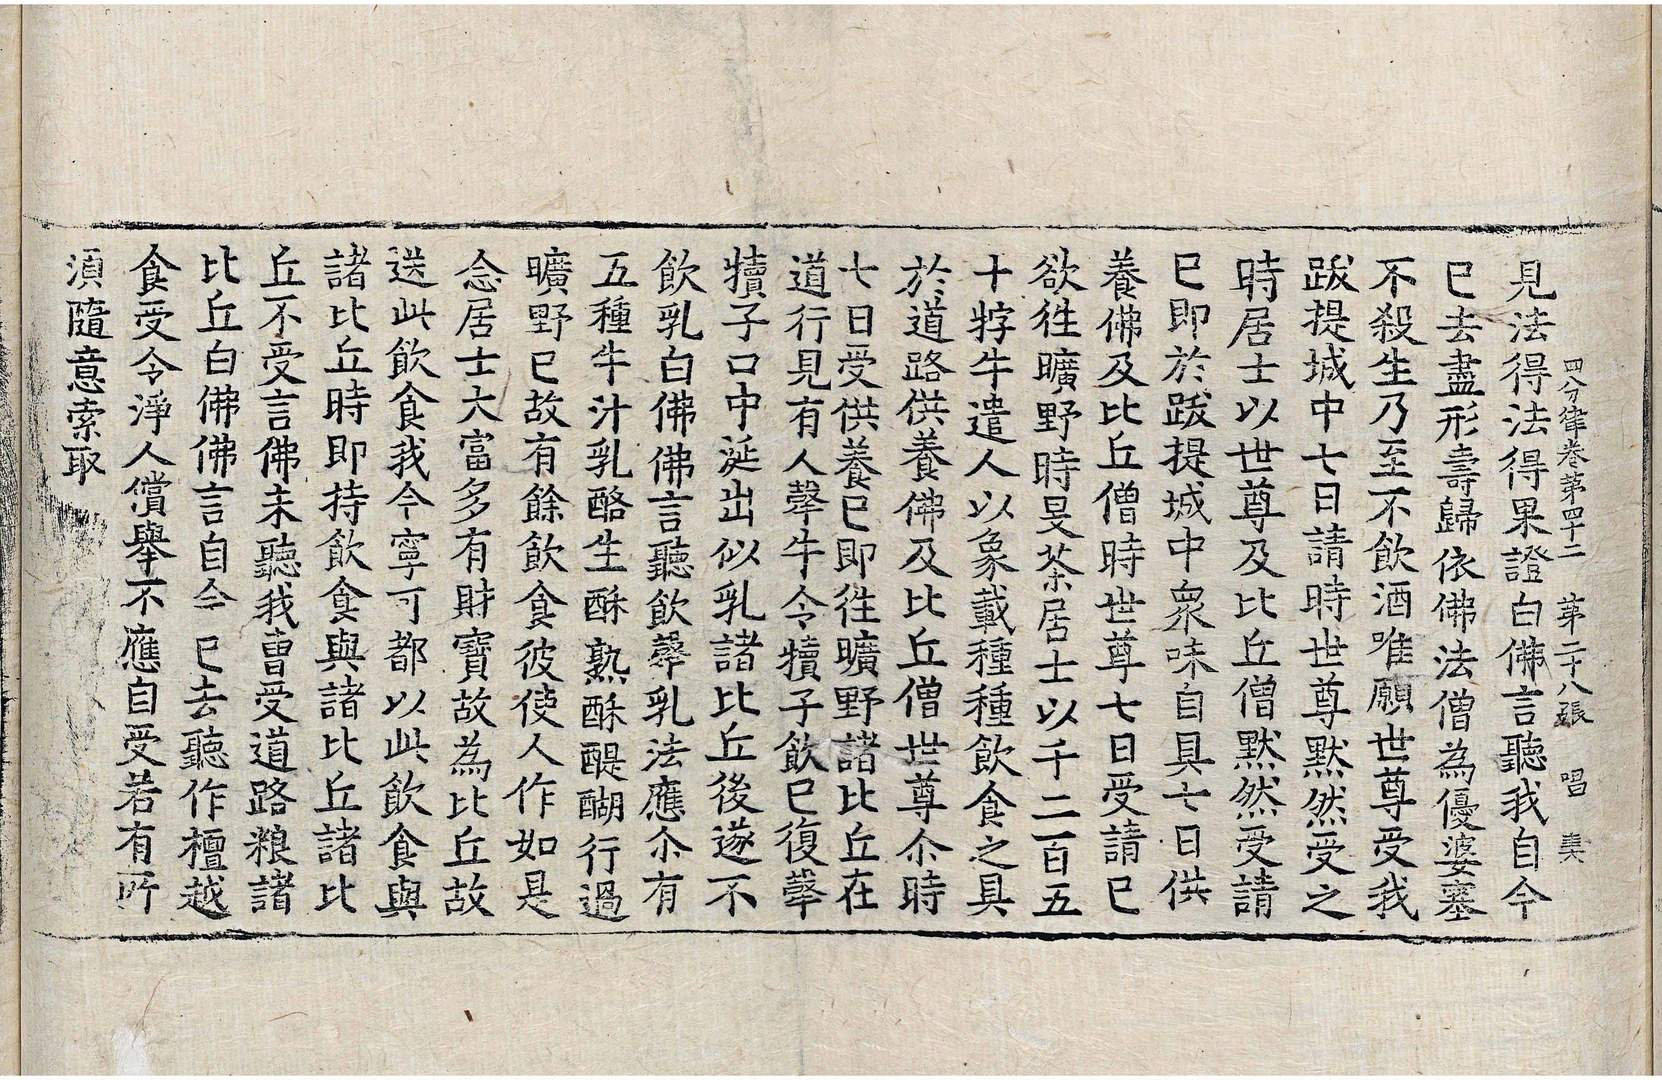 四分律卷第四十二　第二十八張　唱
見法得法得果證白佛言聽我自今
已去盡形壽歸依佛法僧為優婆塞
不殺生乃至不飲酒唯願世尊受我
跋提城中七日請時世尊默然受之
時居士以世尊及比丘僧默然受請
已即於跋提城中眾味自具七日供
養佛及比丘僧時世尊七日受請已
欲徃曠野時旻茶居士以千二百五
十牸牛遣人以象載種種飲食之具
於道路供養佛及比丘僧世尊尒時
七日受供養已即徃曠野諸比丘在
道行見有人𤚲牛令犢子飲已復𤚲
犢子口中涎出似乳諸比丘後遂不
飲乳白佛佛言聽飲𤚲乳法應尒有
五種牛汁乳酪生酥熟酥醍醐行過
曠野已故有餘飲食彼使人作如是
念居士大富多有財寶故為比丘故
送此飲食我今寧可都以此飲食與
諸比丘時即持飲食與諸比丘諸比
丘不受言佛未聽我曹受道路粮諸
比丘白佛佛言自今已去聽作檀越
食受令淨人償舉不應自受若有所
須隨意索取